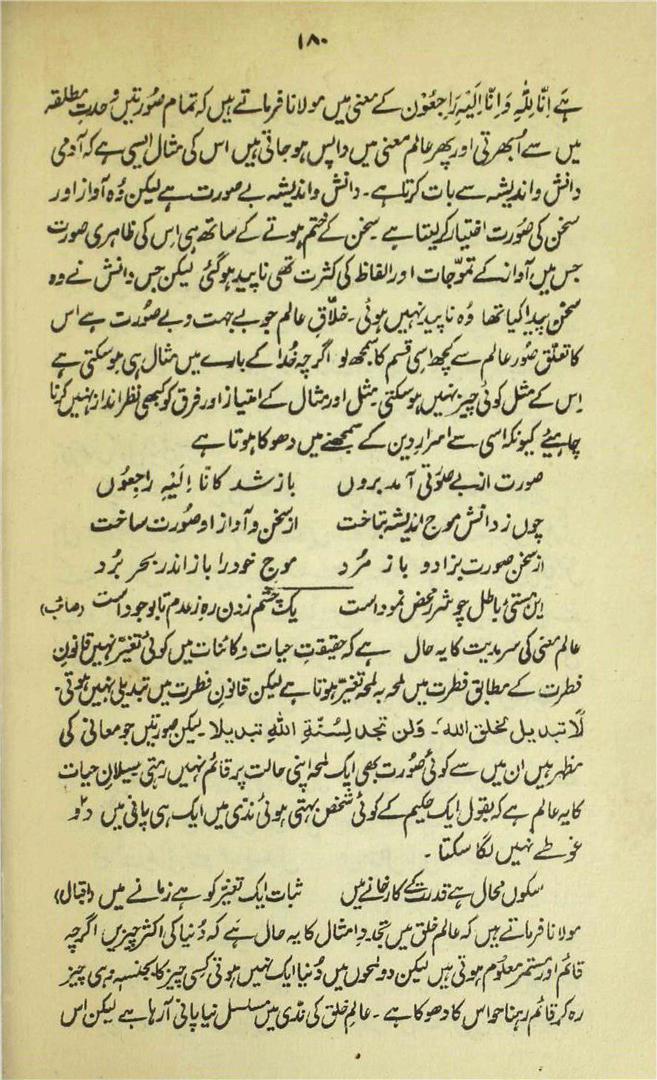 ۱۸۰
ہے اِنَّا لِلّٰہِ وَ اِنَّا اِلَیْہِ رَاجِعُوْن کے معنی میں مولانا فرماتے ہیں کہ تمام صُورتیں وحدتِ مطلقہ
میں سے اُبھرتی اور پھر عالم معنی میں واپس ہو جاتی ہیں اس کی مثال ایسی ہے کہ آدمی
دانش و اندیشہ سے بات کرتا ہے۔ دانش و اندیشہ بے صورت ہے لیکن وُہ آواز اور
سخن کی صُورت اختیار کر لیتا ہے سخن کے ختم ہوتے کے ساتھ ہی اِس کی ظاہری صورت
جس میں آواز کے تموّجات اور الفاظ کی کثرت تھی ناپید ہو گئی لیکن جس دانش نے وہ
سخن پیدا کیا تھا وُہ ناپید نہیں ہوئی۔ خلّاقِ عالم جو بے جہت و بے صُورت ہے اس
کا تعلّق صُورِ عالم سے کچھ اسی قسم کا سمجھ لو اگرچہ خُدا کے بارے میں مثال ہی ہو سکتی ہے
اِس کے مثل کوئی چیز نہیں ہو سکتی مثل اور مثال کے امتیاز اور فرق کو کبھی نظر انداز نہیں کرنا
چاہیئے کیونکہ اسی سے اسرارِ دین کے سمجھنے میں دھوکا ہوتا ہے
صورت از بے صُوتی آمد بروں باز شد کانّا اِلَیْہِ راجِعُوں
چوں ز دانش موج اندیشہ بتاخت از سخن و آواز او صُورت ساخت
از سخن صورت بزاد و باز مُرد موج خود را باز اندر بحر بُرد
ایں ہستیِٔ باطل چو شرر محض نمود است یک چشم زدن رہ ز عدم تا بوجود است (صائب)
عالم معنی کی سرمدیت کا یہ حال ہے کہ حقیقتِ حیات و کائنات میں کوئی تغیّر نہیں قانونِ
فطرت کے مطابق فطرت میں لمحہ بہ لمحہ تغیّر ہوتا ہے لیکن قانونِ فطرت میں تبدیلی نہیں ہوتی۔
لَا تبدیل لخلق اللہ۔ وَلن تجد لِسُنَّۃِ اللہِ تبدیلا لیکن صورتیں جو معانی کی
مظہر ہیں ان میں سے کوئی صُورت بھی ایک لمحہ اپنی حالت پر قائم نہیں رہتی سیلانِ حیات
کا یہ عالم ہے کہ بقول ایک حکیم کے کوئی شخص بہتی ہوئی ندی میں ایک ہی پانی میں دو
غوطے نہیں لگا سکتا ۔
سکوں محال ہے قدرت کے کارخانے میں ثبات ایک تغیّر کو ہے زمانے میں (اقبال)
مولانا فرماتے ہیں کہ عالم خلق میں تجددِ امثال کا یہ حال ہَے کہ دُنیا کی اکثر چیزیں اگرچہ
قائم اور مستمر معلوم ہوتی ہیں لیکن دو لمحوں میں دُنیا ایک نہیں ہوتی کِسی چیز کا بجنسہ وہی چیز
رہ کر قائم رہنا حواس کا دھوکا ہے ۔ عالمِ خلق کی ندی میں مسلسل نیا پانی آ رہا ہے لیکن اس